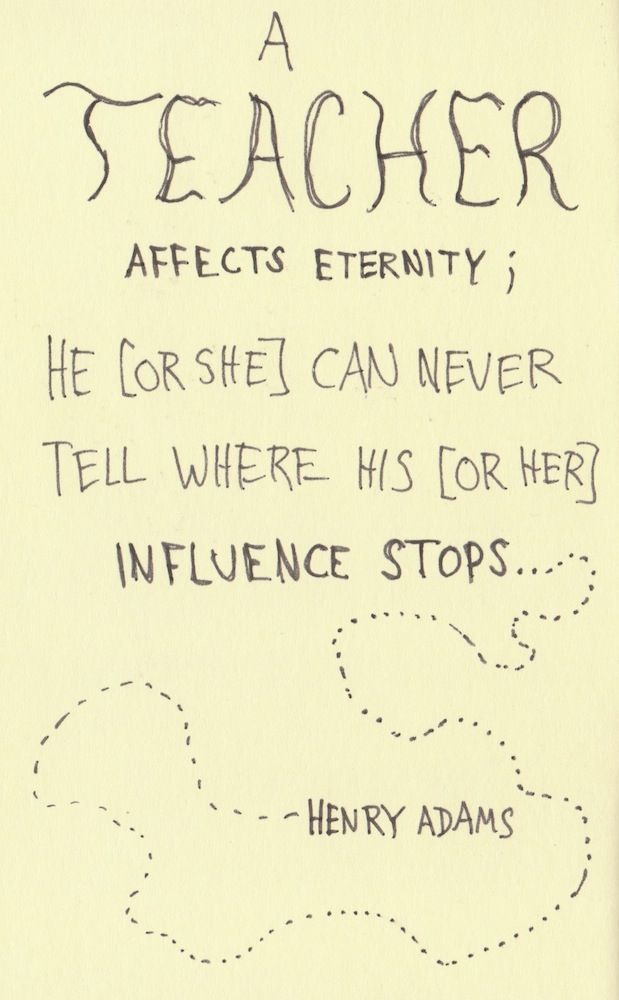 A
TEACHER
AFFECTS ETERNITY;
HE [OR SHE] CAN NEVER
TELL WHERE HIS [OR HER]
INFLUENCE STOPS...
-HENRY ADAMS